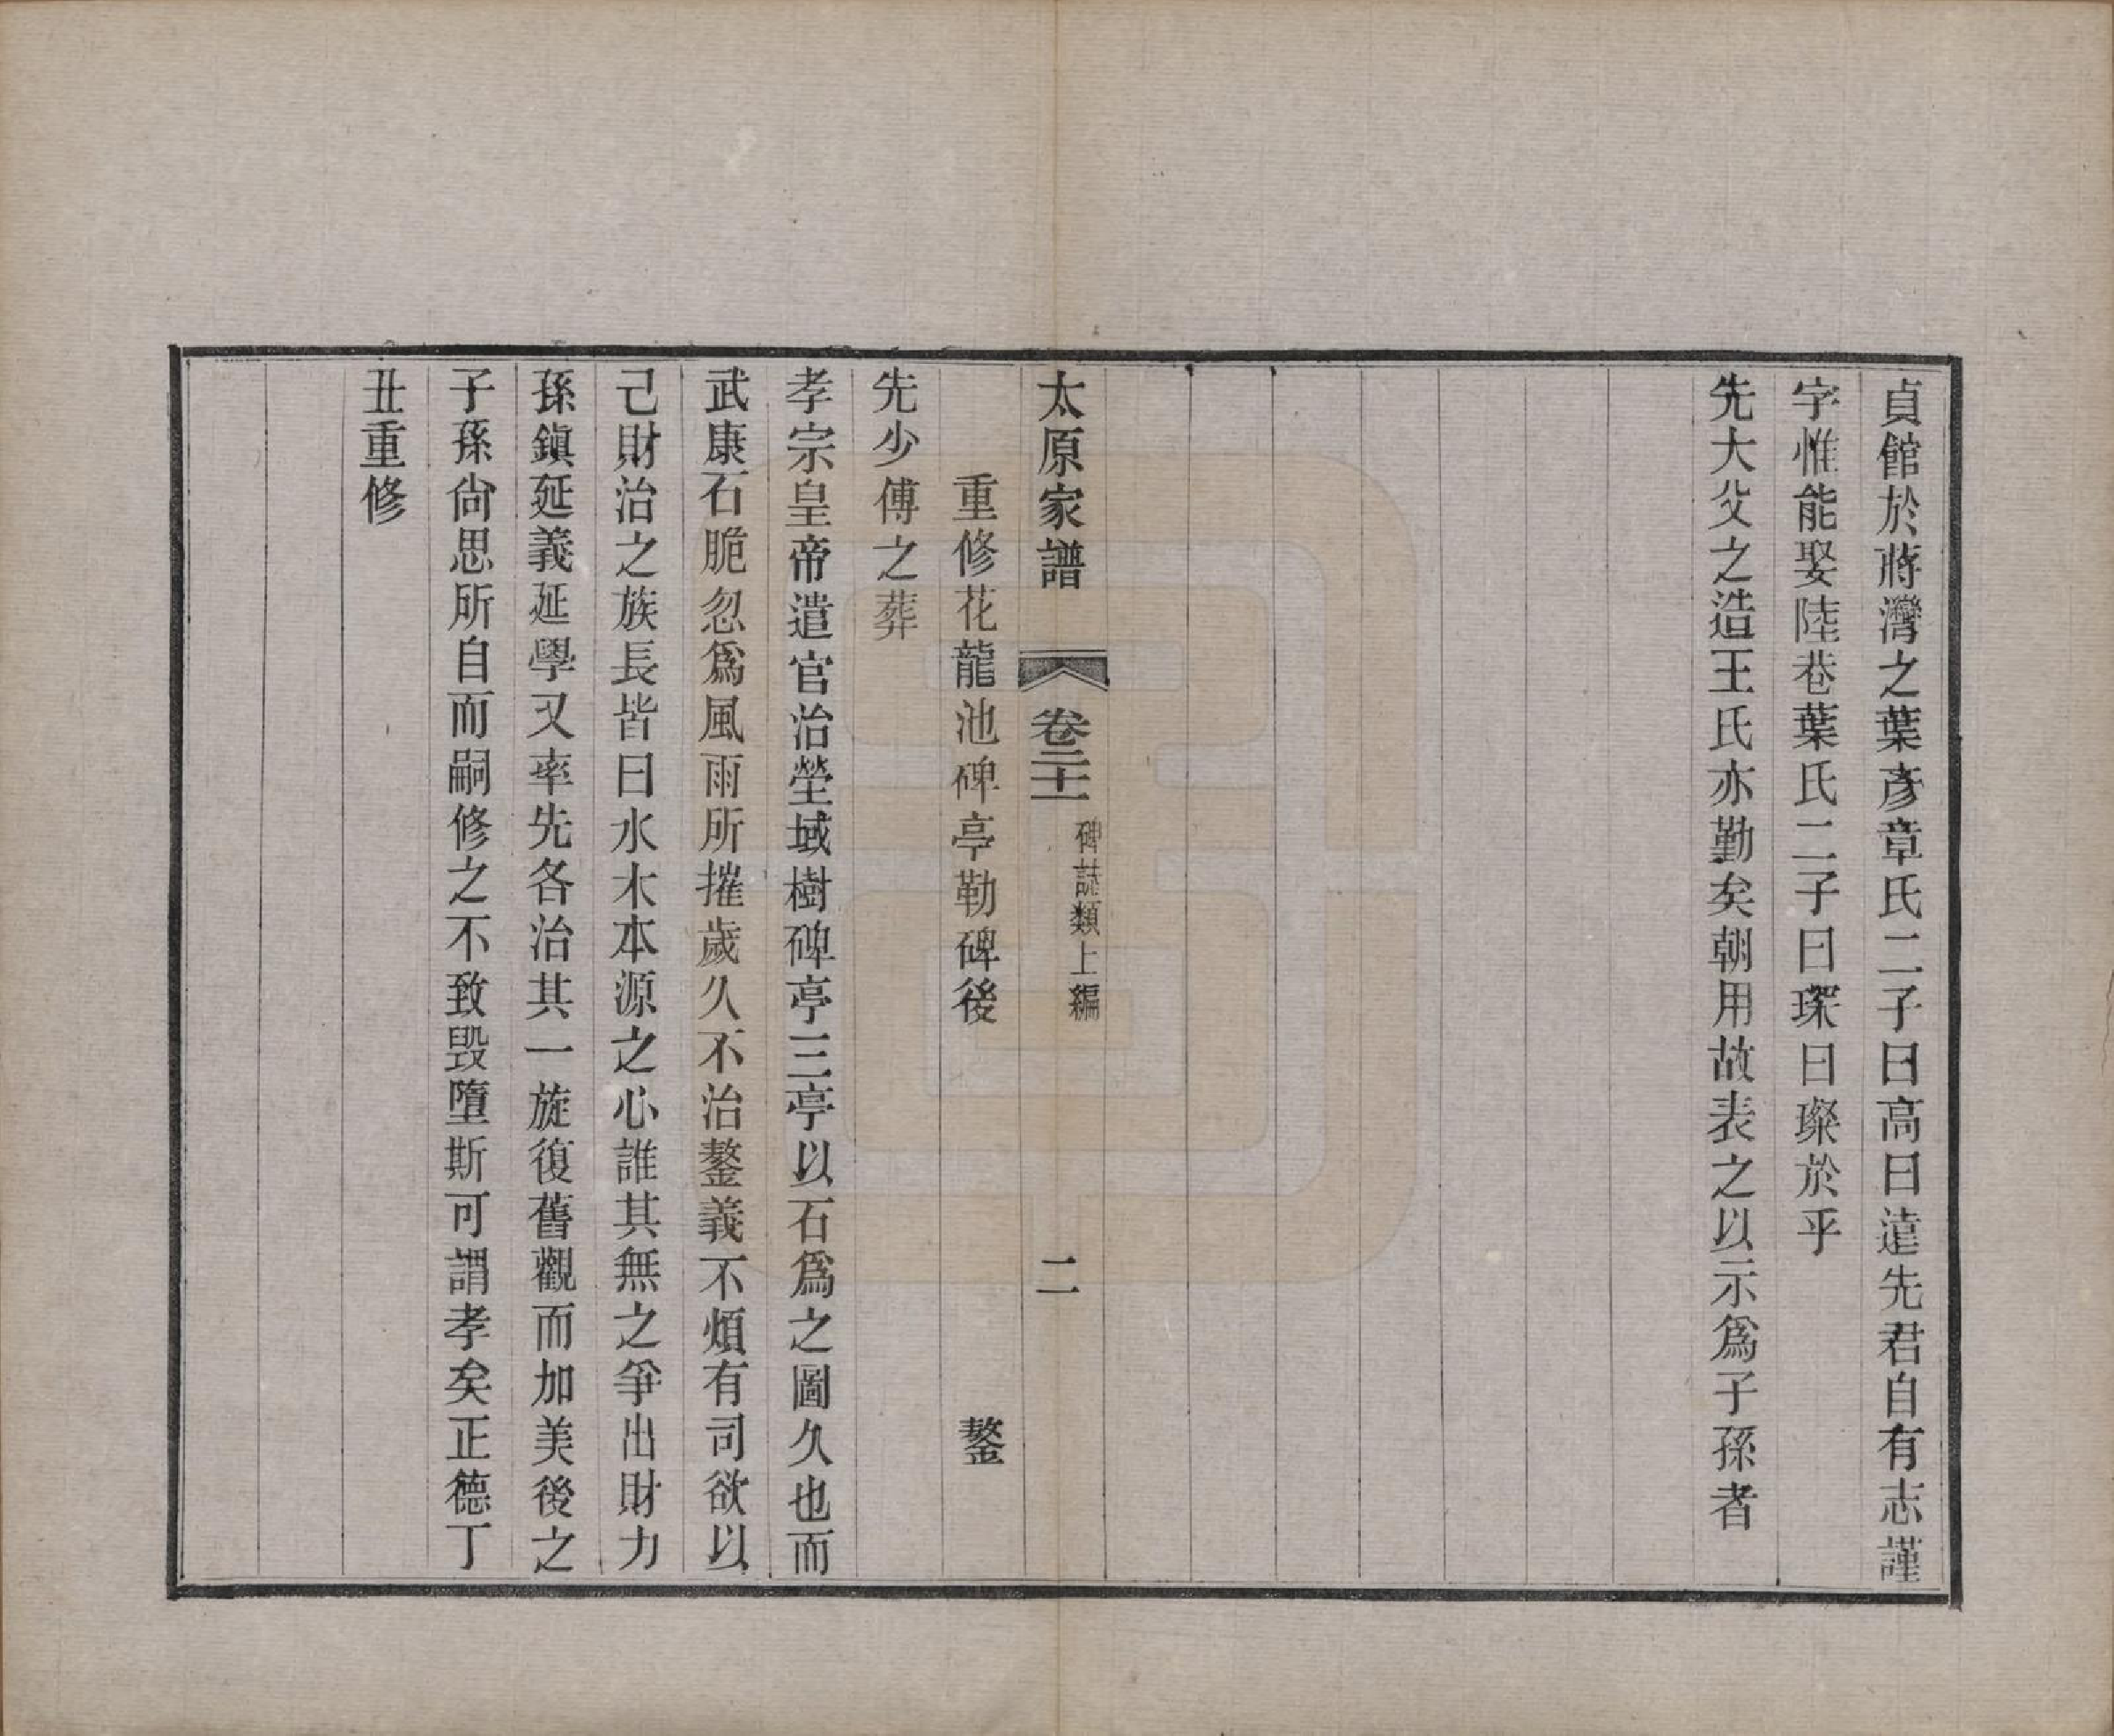 貞館於蔣灣之葉彥章氏二子曰高曰遠先君自有志謹
字惟能娶陸巷葉氏二子曰琛曰璨於乎
先大父之造王氏亦勤矣朝用故表之以示爲子孫者
太原家譜 卷二十一 碑誌類上編 二
重修花龍池碑亭勒碑後 鏊
先少傅之葬
孝宗皇帝遣官治塋域樹碑亭三亭以石爲之圖久也而
武康石脆忽爲風雨所摧歲久不治鏊義不煩有司欲以
己財治之族長皆曰水木本源之心誰其無之爭出財力
孫鎭延義延學又率先各治其一旋復舊觀而加美後之
子孫尙思所自而嗣修之不致毀墮斯可謂孝矣正德丁
丑重修